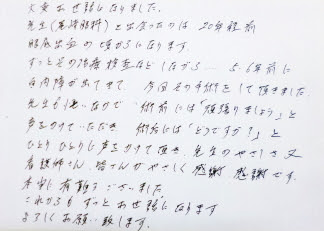 大変お世話になりました。
先生(尾澤眼科)と出会ったのは 20年程前
眼底出血の頃からになります。
ずっとその治療検査などしながら…… 5.6年前に
白内障が出てきて、今回その手術をして頂きました。
先生もいなので 術前には「頑張りましょう」と
声をかけていただき 術后には「どうですか?」と
ひとりひとりに声をかけて頂き、先生のやさしさ 又
看護師さん、皆さんがやさしく感謝 感謝です。
本当に有難うございました。
これからもずっとお世話になります
よろしくお願い致します。